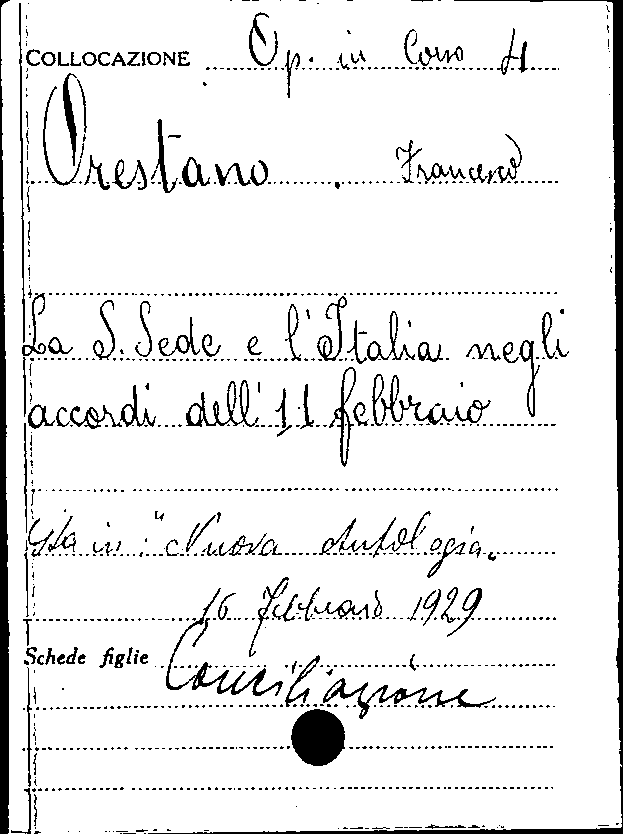 COLLOCAZIONE Op. in Corso 4
Orestano. Francesco
La S. Sede e l'Italia negli
accordi dell'11 febbraio
Sta in: "Nuova Antologia„
16 Febbraio 1929
Schede figlie Conciliazione